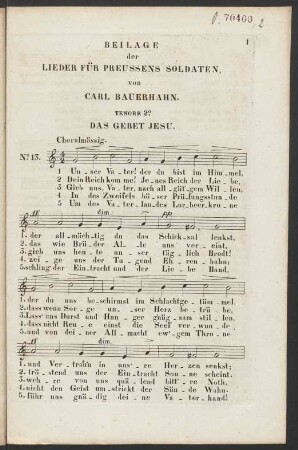 P. 70400 2
1
BEILAGE
der
LIEDER FÜR PREUSSENS SOLDATEN,
von
CARL BAUERHAHN.
TENORE 2º
DAS GEBET JESU.
Choralmässig.
Nº 13.
1 Un_ser Va_ter! der du bist im Him_mel,
2 Dein Reich kom me! Je_nes Reich der Lie_be,
3 Gieb uns Va_ter, nach all güt'gem Wil_len,
4 In des Zweifels bö_ser Prüfungsstun_de
5 Um des Va_ter_lan_des Lor_beer_kro_ne
ff dim. pp
1. der all_mäch_tig du das Schick_sal lenkst,
2. das wie Brü_der Al_le uns ver_eint,
3. gieb uns heu_te un_ser täg_lich Brodt!
4. zei_ge uns der Tu_gend Eh_ren_bahn;
5. schling der Ein_tracht und der Lie_be Band,
1. der du uns be_schirmst im Schlacht_ge_tüm_mel,
2. dass wenn Sor_ge un_ser Herz be_trü_be,
3. dass uns Durst und Hun_ger stil_len,
4. dass nicht Reu_e einst die Seel' ver_wun_de,
5. und von dei_ner All_macht ew'_gem Thro_ne
ff dim.
1. und Ver_trau'n in uns're Her_zen senkst;
2. trö_stend uns der Ein_tracht Son_ne scheint,
3. weh_re von uns quä_lend bitt'_re Noth,
4. nicht den Geist um_strickt der Sün_de Wahn.
5. führ' uns gnä_dig dei_ne Va_ter_hand!